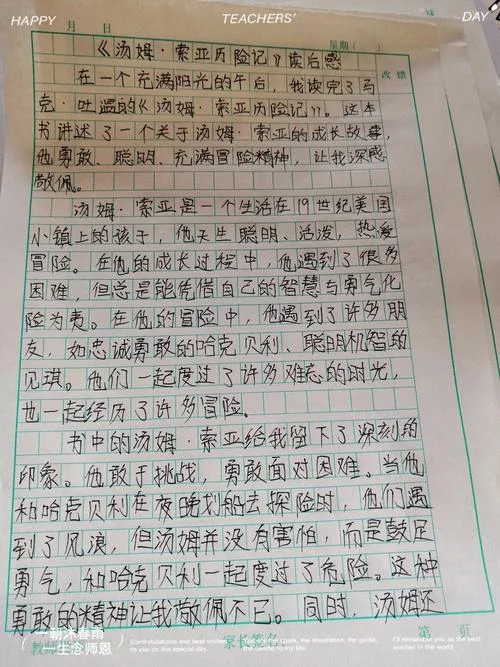 HAPPY TEACHERS' DAY
月 日 星期（ ）
《汤姆·索亚历险记》读后感
改错
在一个充满阳光的午后，我读完了马
克·吐温的《汤姆·索亚历险记》。这本
书讲述了一个关于汤姆·索亚的成长故事，
他勇敢、聪明、充满冒险精神，让我深感
敬佩。
汤姆·索亚是一个生活在19世纪美国
小镇上的孩子，他天生聪明、活泼，热爱
冒险。在他的成长过程中，他遇到了很多
困难，但总是能凭借自己的智慧与勇气化
险为夷。在他的冒险中，他遇到了许多朋
友，如忠诚勇敢的哈克贝利、聪明机智的
贝琪。他们一起度过了许多难忘的时光，
也一起经历了许多冒险。
书中的汤姆·索亚给我留下了深刻的
印象。他敢于挑战，勇敢面对困难。当他
和哈克贝利在夜晚划船去探险时，他们遇
到了风浪，但汤姆并没有害怕，而是鼓足
勇气，和哈克贝利一起度过了危险。这种
勇敢的精神让我敬佩不已。同时，汤姆还
一朝沐春雨
一生念师恩
家长签名
第 页